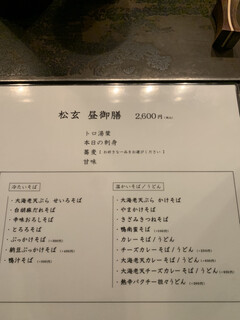 松玄 昼御膳 2,600円(税込)
トロ湯葉
本日の刺身
蕎麦(お好きな一品をお選びください)
甘味
冷たいそば
・大海老天ぷら せいろそば
・白胡麻だれそば
・辛味おろしそば
・とろろそば
・ぶっかけそば
・納豆ぶっかけそば
・鴨汁そば
温かいそば/うどん
・大海老天ぷら かけそば
・やまかけそば
・きざみきつねそば
・鴨南蛮そば
・カレーそば/うどん
・チーズカレーそば/うどん
・大海老天カレーそば/うどん
・大海老天チーズカレーそば/うどん
・熱辛パクチー担々うどん